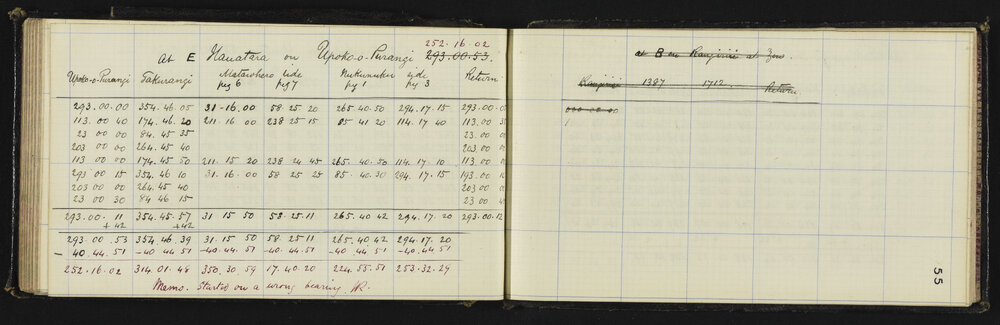 252.16.02
At E Hauatara on Upoko-o-Purangi 293.00.53.
Upoko-o-Purangi Takurangi Side Side Return
peg 6 peg 7 peg 1 peg 3
293.00.00 354.46.05 31-16.00 58.25 20 265.40.50 294.17.15 293.00.0
113.00 40 174.46.20 211.16 00 238 25 15 85 41 20 114.17 40 113.00 3
23 00 00 84.45 35 23.00 0
203 00 00 264.45 40 203.00
113 00 00 174.45 50 211.15 20 238 24 45 265.40.50 114.17 10 113 00
293 00 15 354.46 10 31.16.00 58 25 25 85.40.30 294.17.15 193 00
203 00 00 264.45 40 203 00 0
23 00 30 84 46 15 23 00
293.00.11 354.45.57 31 15 50 58.25.11 265.40 42 294.17.20 293.00.12
+42 +42
293.00.53 354.46.39 31.15 50 58.25 11 265.40 42 294.17.20
- 40.44.51 -40 44 51 -40.44.51 -40.44.51 -40 44 51 -40.44 51
252.16.02 314.01.48 350.30.59 17.40.20 224.55.51 253.32.29
Memo. Started on a wrong bearing.
at B on Ranjiriri at Zero.
Ranjiriri 1387 1712. Return
000 00.00
55